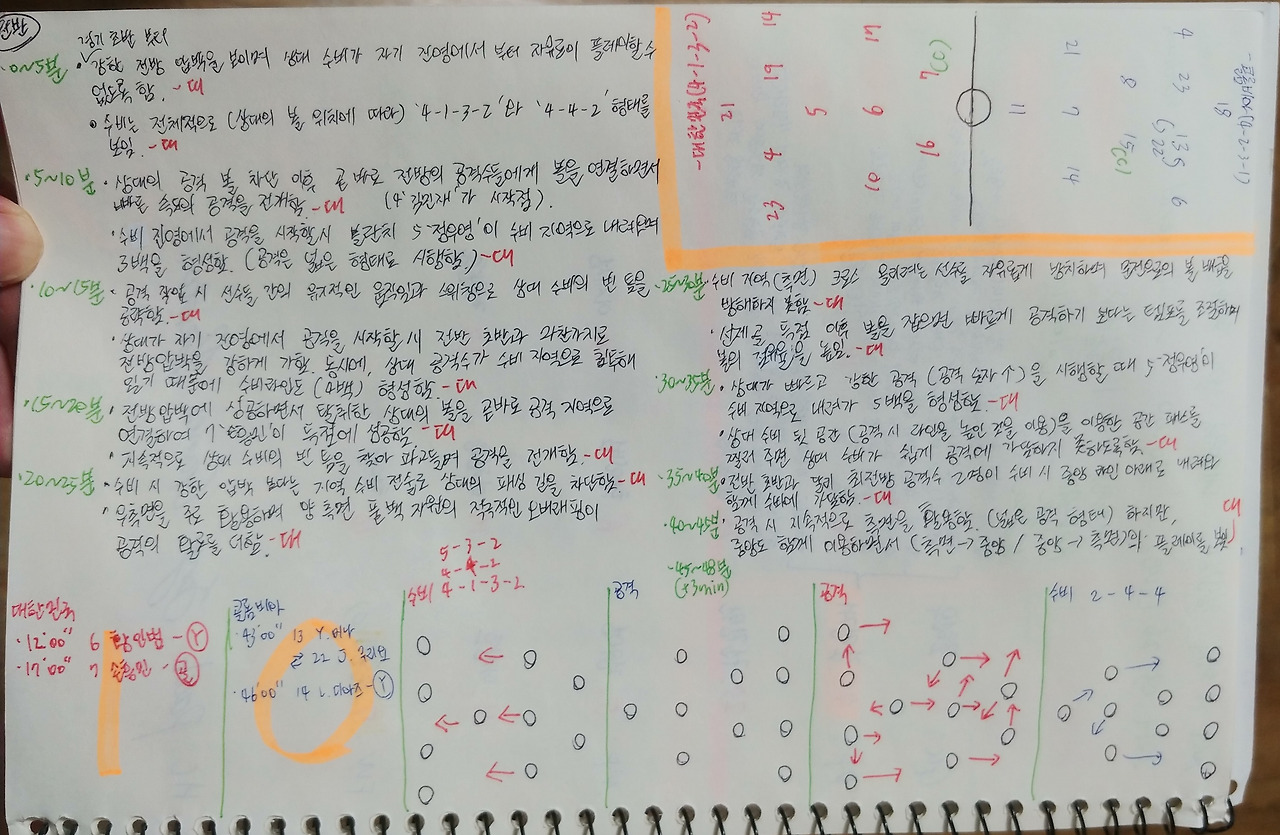 전반
경기 초반 부터
·0~5분 · 강한 전방 압박을 보이며 상대 수비가 자기 진영에서 부터 자유로이 플레이할 수
없도록 함. -대
· 수비는 전체적으로 (상대의 볼 위치에 따라) '4-1-3-2'와 '4-4-2' 형태를
보임. -대
·5~10분 · 상대의 공격 볼 차단 이후 곧바로 전방의 공격수들에게 볼을 연결하면서
빠른 속도의 공격을 전개함. -대 (4 '김민재'가 시작점).
· 수비 진영에서 공격을 시작할 시 볼란치 5-정우영'이 수비 지역으로 내려오며
3백을 형성함. (공격은 넓은 형태로 시행함.) -대
·10~15분 · 공격 작업 시 선수들 간의 유기적인 움직임과 스위칭으로 상대 수비의 빈 틈을
공략함. -대
· 상대가 자기 진영에서 공격을 시작할 시 전반 초반과 마찬가지로
전방압박을 강하게 가함. 동시에, 상대 공격수가 수비 지역으로 침투해
있기 때문에 수비라인도 (4백) 형성함. -대
·15~20분 · 전방압박에 성공하면서 탈취한 상대의 볼을 곧바로 공격 지역으로
연결하여 7 '손흥민'이 득점에 성공함. -대
· 지속적으로 상대 수비의 빈 틈을 찾아 파고들며 공격을 전개함. -대
·20~25분 · 수비 시 강한 압박 보다는 지역 수비 전술로 상대의 패싱 길을 차단함. -대
· 우측면을 주로 활용하며 양 측면 풀백 자원의 적극적인 오버래핑이
공격의 활로를 더함. -대
-대한민국(4-1-3-2)
21
23 4 19 14
5
10 6 17
16 7 (C)
11
14 7 21
15 (C) 8
6 13 23 4
22
18
-콜롬비아(4-2-3-1)
·25~30분 · 수비 지역(측면) 크로스 올리려는 선수를 자유롭게 방치하며 문전으로의 볼 배급을
방해하지 못함. -대
· 선제골 득점 이후 볼을 잡으면 빠르게 공격하기 보다는 템포를 조절하며
볼의 점유율을 높임. -대
·30~35분 · 상대가 빠르고 강한 공격 (공격 숫자↑)을 시행할 때 5-정우영'이
수비 지역으로 내려가 5백을 형성함. -대
· 상대 수비 뒷 공간 (공격 시 라인을 높인 것을 이용)을 이용한 공간 패스를
찔러 주면 상대 수비가 쉽게 공격에 가담하지 못하도록함. -대
·35~40분 · 전반 초반과 달리 최전방 공격수 2명이 수비 시 중앙 라인 아래로 내려와
함께 수비에 가담함. -대
·40~45분 · 공격 시 지속적으로 측면을 활용함. (넓은 공격 형태) 하지만,
중앙도 함께 이용하면서 (측면→중앙 / 중앙→측면)의 플레이를 함 -대
·45~48분
(+3min)
대한민국
·12'00" 6 황인범 - Y
·17'00" 7 손흥민 - 골
콜롬비아
·43'00" 13 Y.미나
⇄ 22 J.
·46'00" 14 L.디아즈 - Y
5-3-2
4-4-2
수비 4-1-3-2
공격
공격
수비 2-4-4